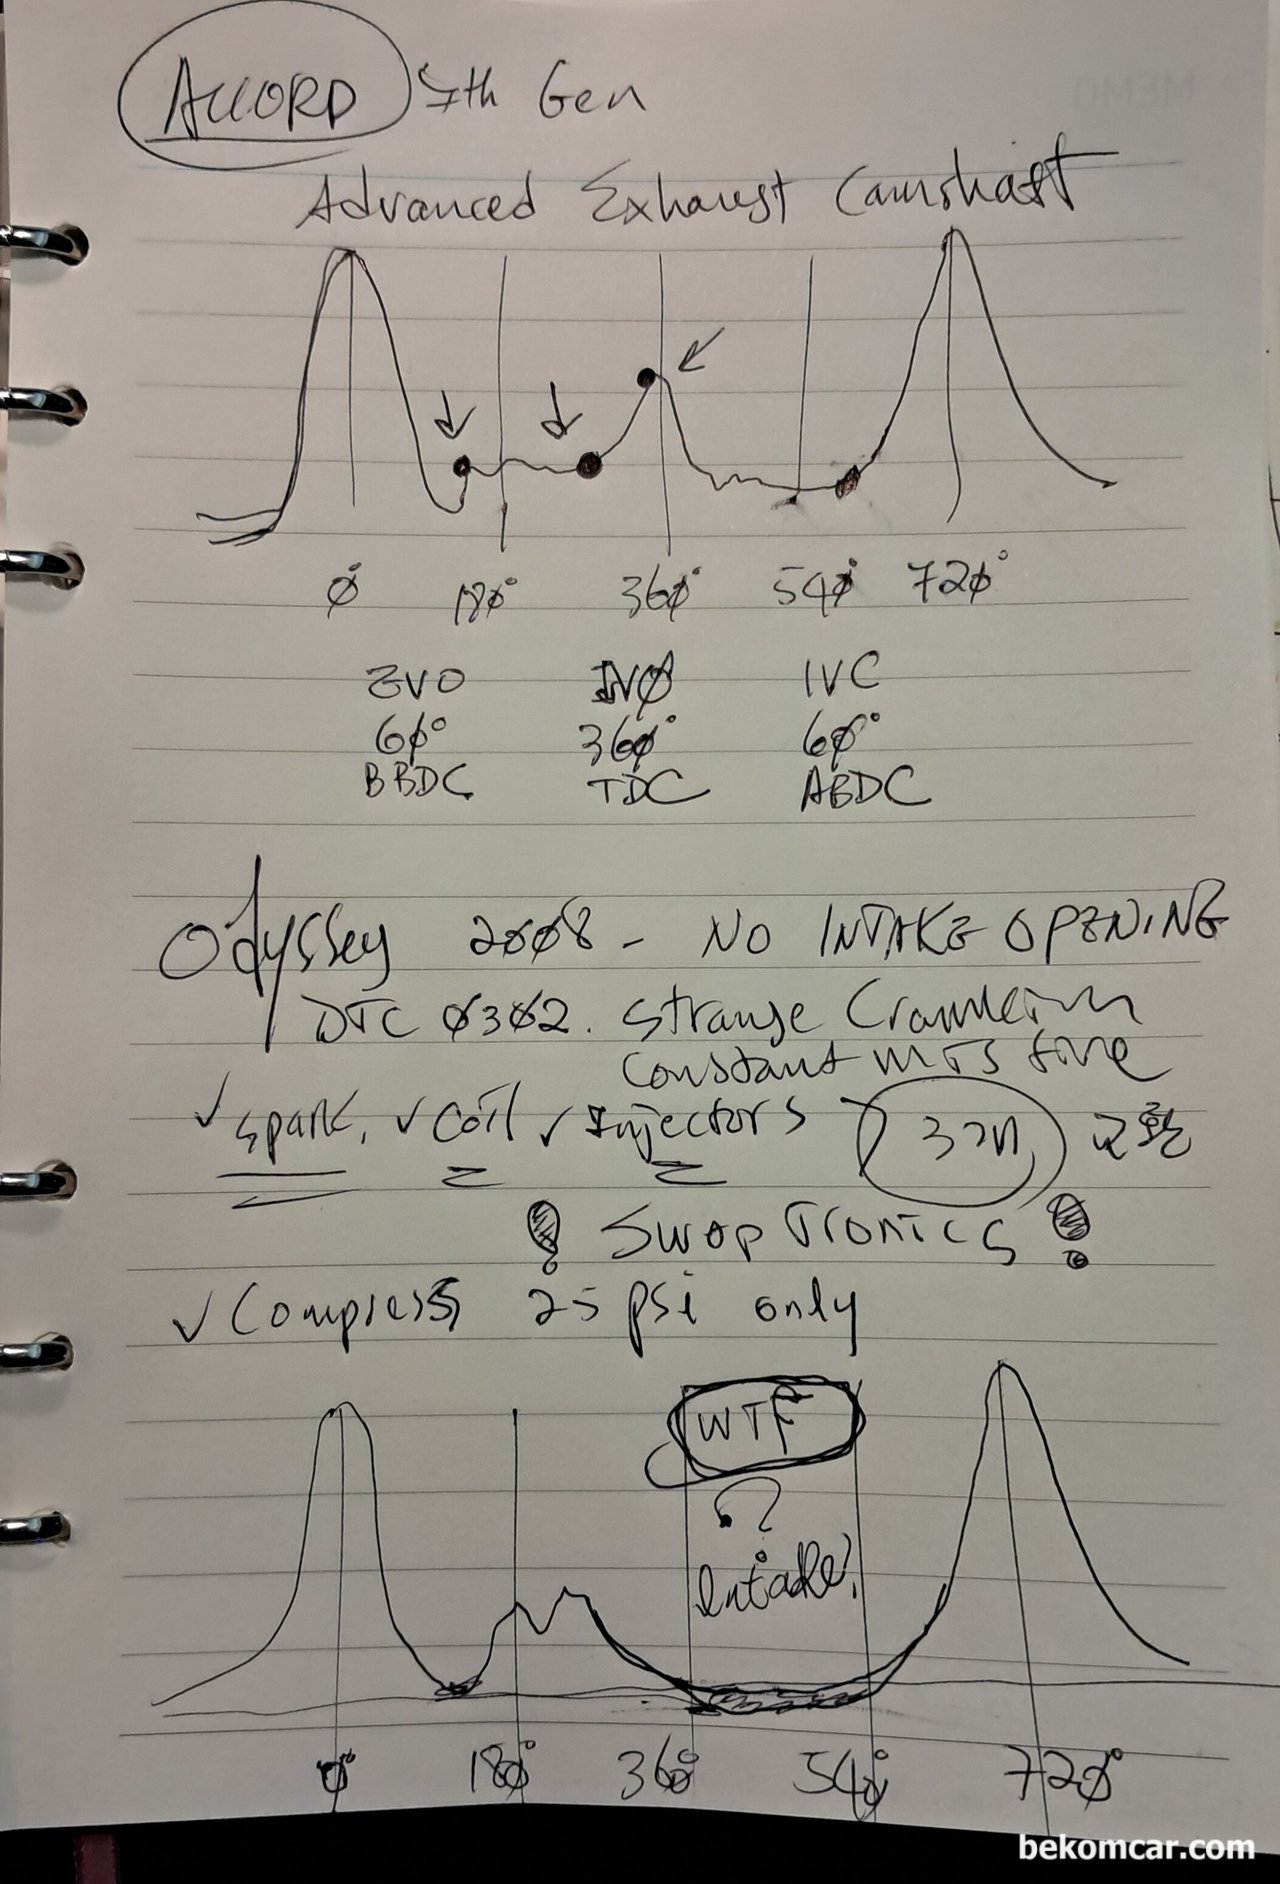 ACCORD 7th Gen
Advanced Exhaust Camshaft
0° 180° 360° 540° 720°
EVO IVO IVC
60° 360° 60°
BBDC TDC ABDC
Odyssey 2008 - NO INTAKE OPENING
DTC 0302. Strange
Constant
✓ spark, ✓ coil ✓ Injectors 교환
! Swap Tronics !
✓ Compress 25 psi only
WTF
?
Intake?
0° 180° 360° 540° 720°
bekomcar.com
MEMO